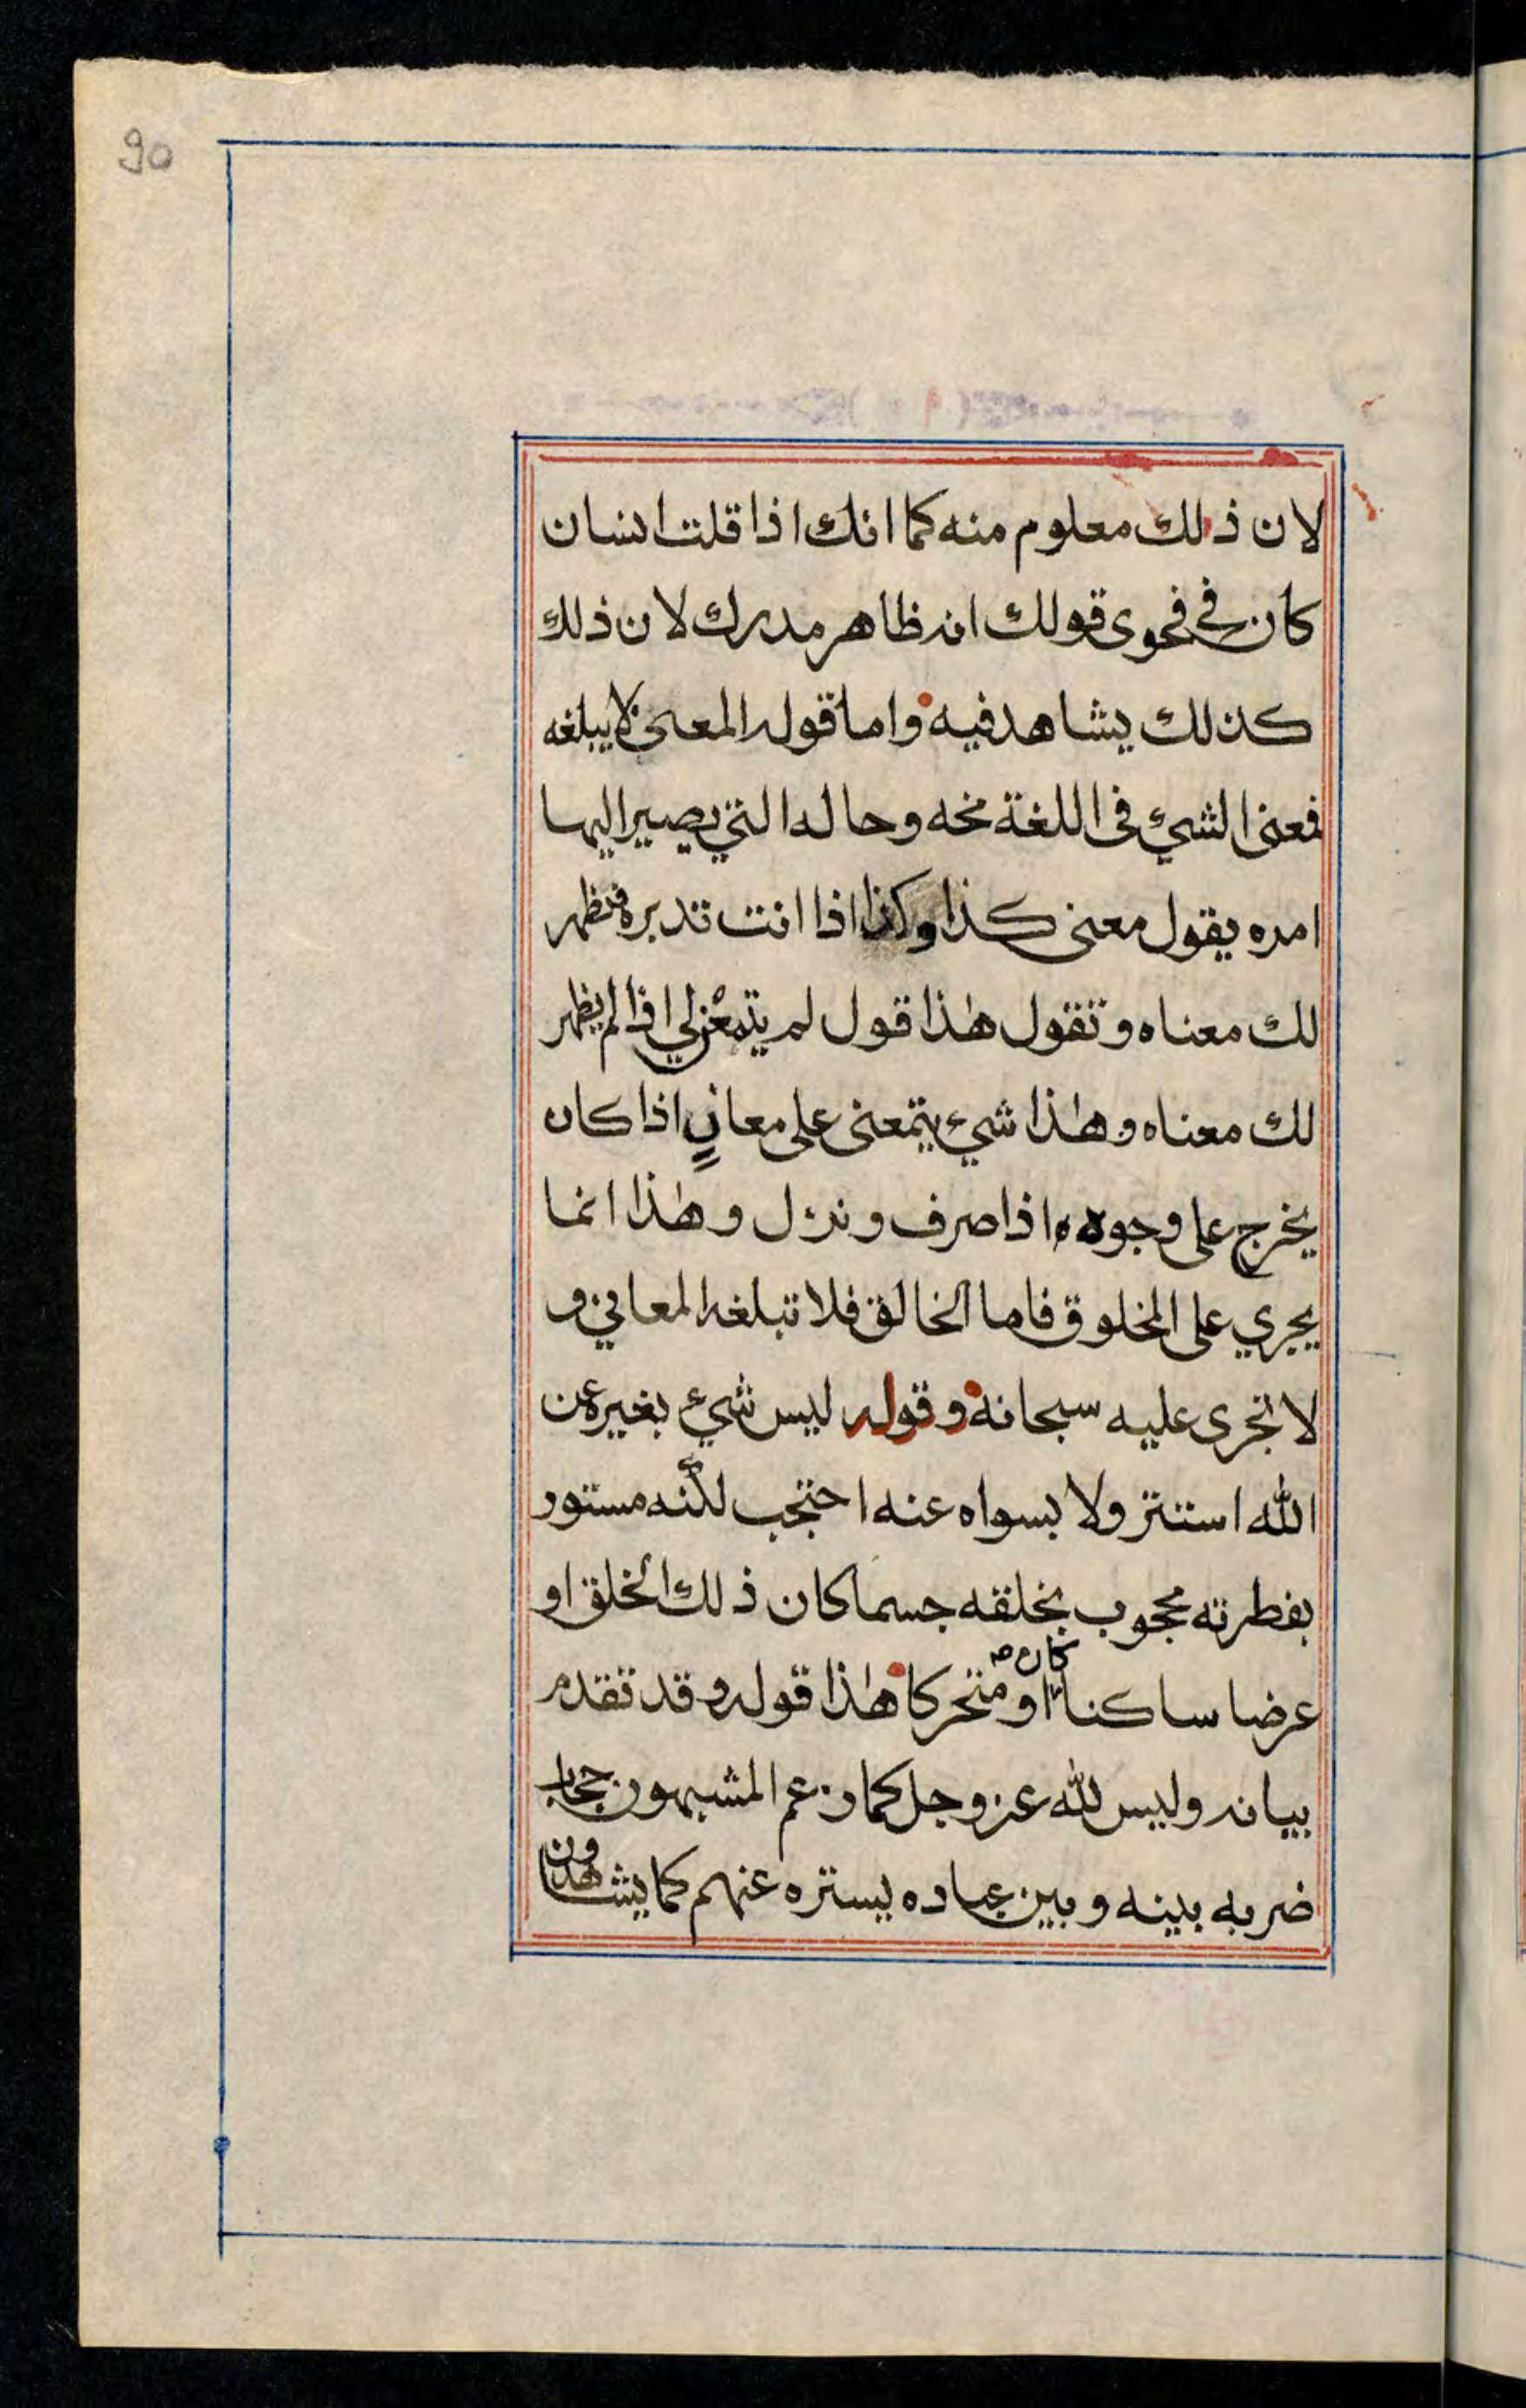 90
لان ذلك معلوم منه كما انك اذا قلت انسان
كان في فحوى قولك انه ظاهر مدرك لان ذلك
كذلك يشاهد فيه واما قوله المعنى لا يبلغه
فمعنى الشيء في اللغة نحوه وحاله التي يصير اليها
امره يقول معنى كذا وكذا اذا انت تدبره فتظهر
لك معناه وتقول هذا قول لم يتمعن لي اذا لم يظهر
لك معناه وهذا شيء يتمعنى على معانٍ اذا كان
يخرج على وجوه اذا صرف ونزل وهذا انما
يجري على المخلوق فاما الخالق فلا تبلغه المعاني و
لا تجرى عليه سبحانه وقوله ليس شيء بغيره عن
الله استتر ولا بسواه عنه احتجب لكنه مستور
بفطرته محجوب بخلقه جسما كان ذلك الخلق او
كان
عرضا ساكنا او متحركا هذا قوله وقد تقدم
بيانه وليس لله عز وجل كما زعم المشبهون حجاب
ضربه بينه وبين عباده يستره عنهم كما يشاهدون